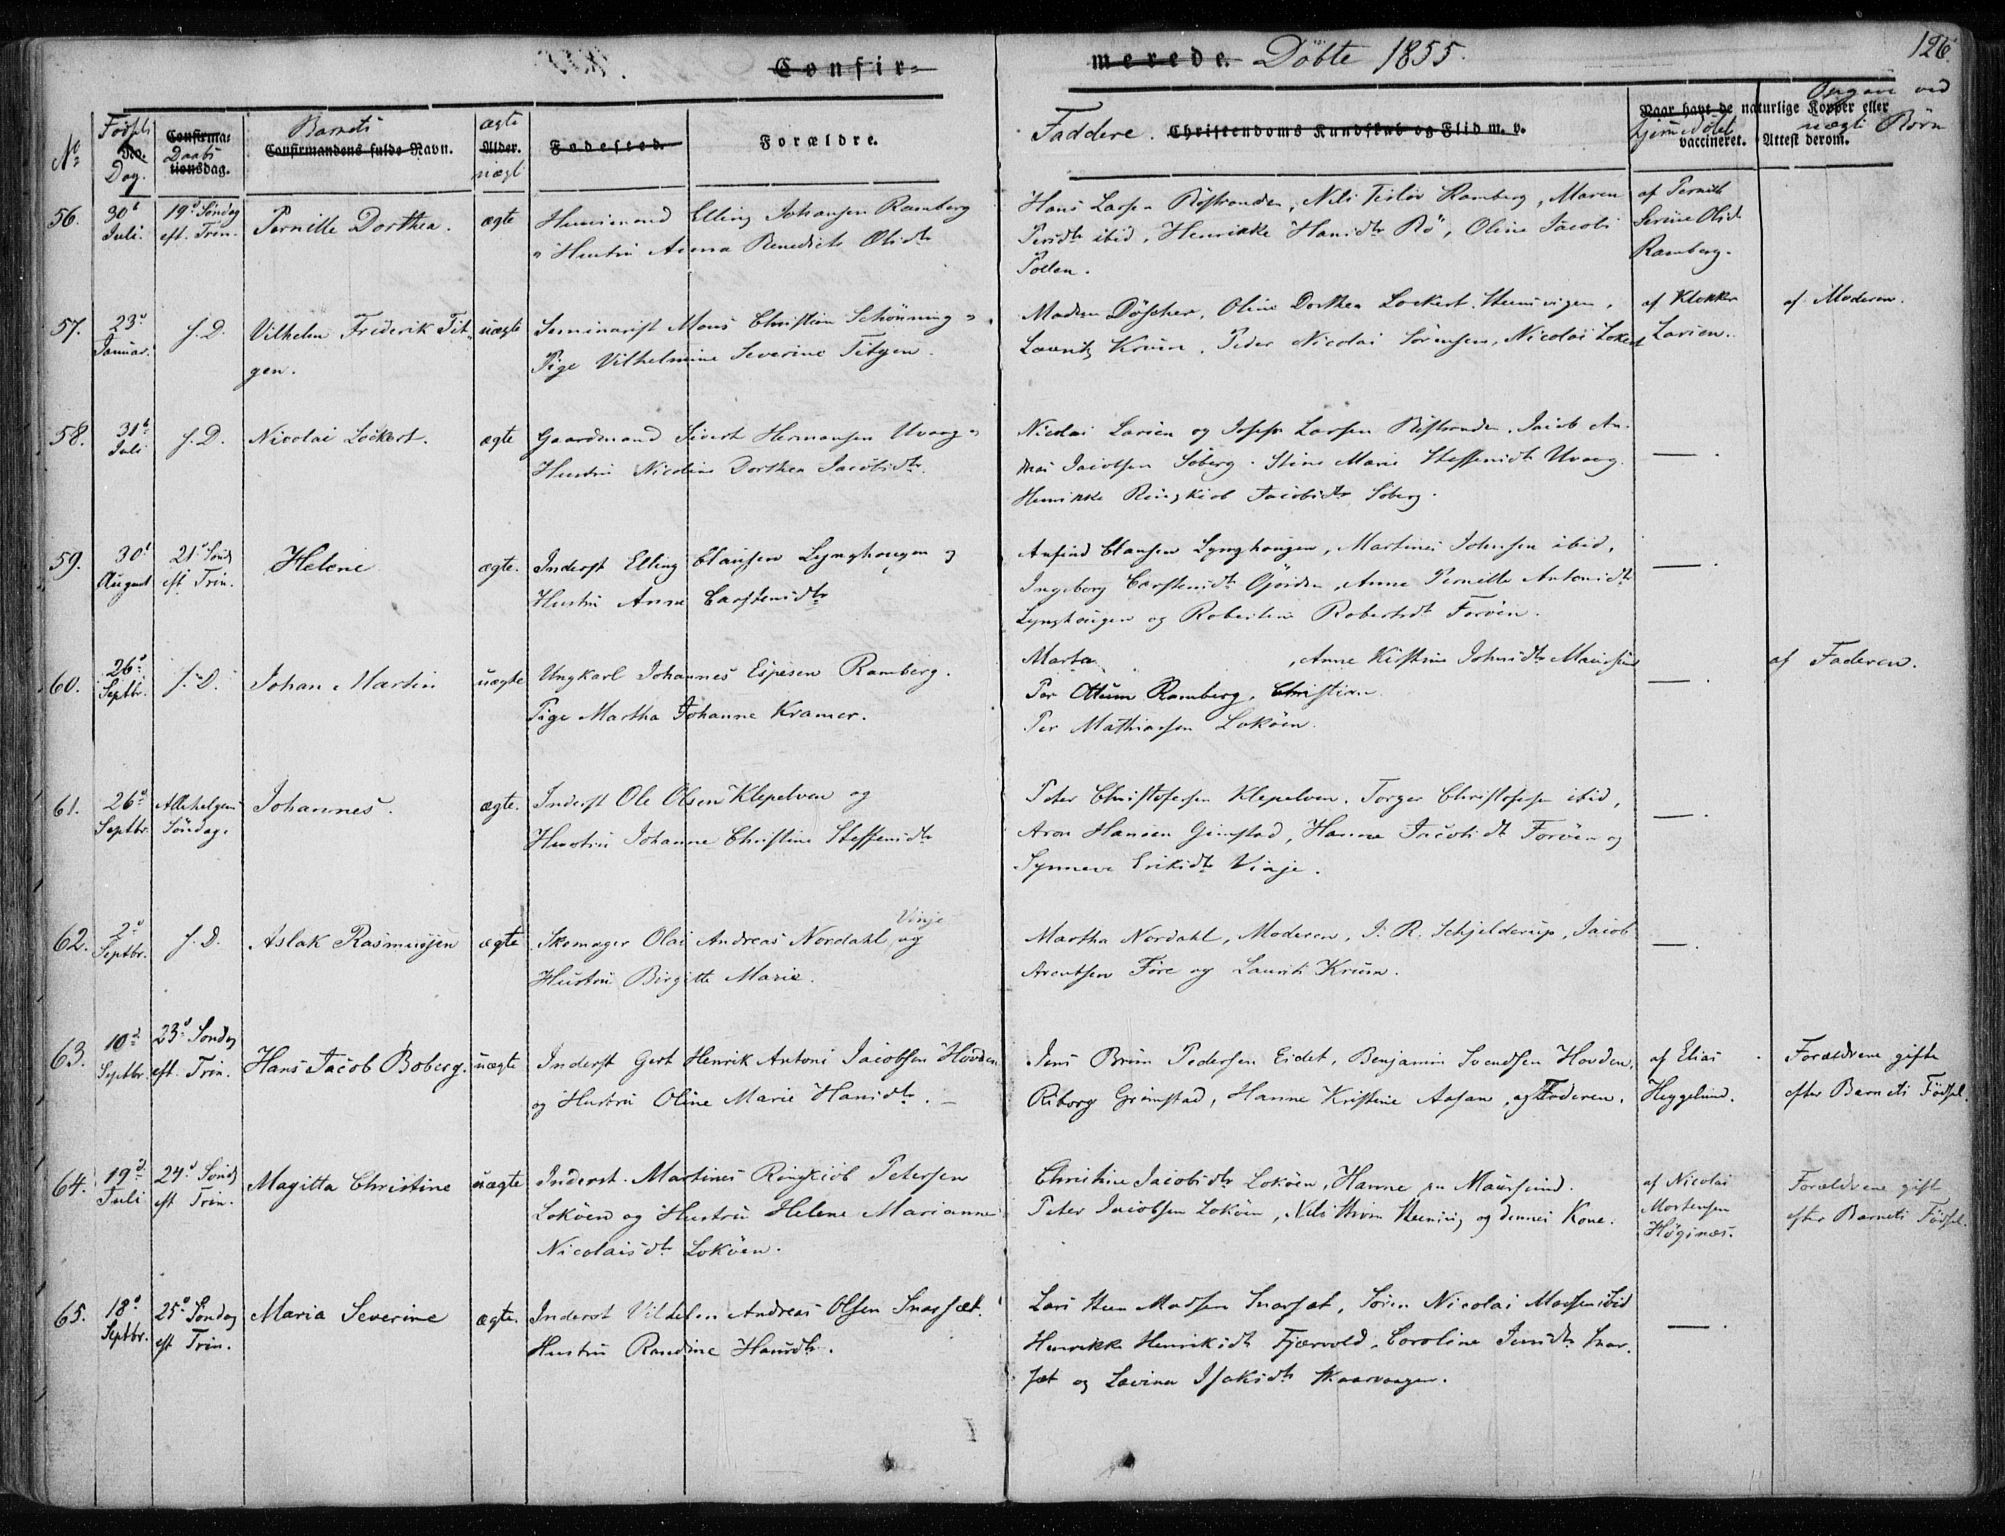 Confirmerede. Döbte 1855.
126
No
Fødsels No. Dag.
Confirmationsdag. Daabs
Barnets
Confirmandens fulde Navn.
ægte
Alder.
uægt
Fødested.
Forældre.
Faddere. Christendoms Kundskab og Flid m. v.
Naar havt de naturlige Kopper eller
hjemmedøbt
vaccineret. Attest derom.
ved
uægte Børn
56.
30te Juli.
19de Söndag eft. Trin.
Pernille Dorthea.
ægte
Huusmand Elling Johansen Ramberg
Hustru Anna Benedicte Olsdtr
Hans Larsen Röstranden, Nils Ramberg, Maren
Persdtr ibid, Henrikke Hansdtr Rö, Oline Jacobs
Pollen.
af Pernille
Serine Olsd.
Ramberg.
57.
23de Januar.
s. D.
Vilhelm Frederik Tit-
gen.
uægte
Seminarist Mons Christian Schönning
Pige Vilhelmine Severine Titgen.
Madam Döscher, Oline Dorthea Lockert
Lauritz Kruse, Peder Nicolai Sörensen, Nicolai Lokert
af Klokker
Larsen.
af Moderen.
58.
31te Juli
s. D.
Nicolai Lockert.
ægte
Gaardmand Sivert Hermansen Uvaag
Hustru Nicoline Dorthea Jacobsdtr.
Nicolai Larsen og Joseph Larsen Röstranden, Jacob An-
dreas Jacobsen Söberg. Stine Marie Steffensdtr Uvaag
Henrikke Ringkiöb Jacobsdtr Söberg.
— .
59.
30te August
21de Sönd. eft. Trin.
Helene
ægte.
Inderst Elling Clausen Lynghougen og
Hustru Anne Carstensdtr
Anfind Clausen Lynghougen, Martines Johnsen ibid,
Ingeborg Carstensdtr Gjörden, Anne Pernille Antonsdtr
Lynghougen og Robertine Robertsdt Foröen.
— .
60.
26de Septbr.
s. D.
Johan Martin
uægte
Ungkarl Johannes Espesen Ramberg.
Pige Martha Johanne Kramer.
Marta , Anne Kirstine Johnsdtr Maursund
Per Ottum Ramberg, Christian
Per Mathiassen Loköen.
— .
af Faderen.
61.
26de Septbr.
Allehelgens Söndag.
Johannes.
ægte.
Inderst Ole Olsen Klepelven og
Hustru Johanne Christine Steffensdtr
Peter Christofersen Klepelven. Torger Christofersen ibid,
Aron Hansen Grimstad, Hanna Jacobsdt Foröen og
Synneve Eriksdtr Vinje.
— .
62.
2de Septbr.
s. D.
Aslak Rasmusjen
ægte
Skomager Olai Andreas Nordahl, Vinje og
Hustru Birgitte Marie.
Martha Nordahl, Moderen, J. R. Schjelderup, Jacob
Arentsen Före og Laurits Krusn.
— .
63.
10de Septbr.
23de Söndag eft. Trin.
Hans Jacob Boberg.
uægte
Inderst Gert Henrik Antoni Jacobsen Hovden
og Hustru Oline Marie Hansdtr. —
Jens Brun Pedersen Eidet, Benjamin Svendsen Hovden,
Riborg Grimstad, Hanne Kristine Aasan, og Faderen.
af Elias
Heggelund.
Forældrene gifte
efter Barnets Födsel.
64.
19de Juli
24de Sönd. eft Trin.
Magitta Christine
uægte
Inderst. Martines Ringkiöb Petersen
Loköen og Hustru Helene Marianne
Nicolaisdtr Loköen.
Christine Jacobsdtr Loköen, Hanne Maursund.
Peter Jacobsen Loköen, Nils Steen Steening og dennes Kone.
af Nicolai
Mortensen
Höginæs.
Forældrene gift
efter Barnets Födsel.
65.
18de Septbr.
25de Söndag eft Trin.
Maria Severine
ægte.
Inderst Vilhelm Andreas Olsen Snarsæt.
Hustru Randine Hansdtr.
Lars Steen Madsen Snarsæt, Sören Nicolai Madsen ibid
Henrikke Henriksdtr Fjærvold, Caroline Jensdtr Snar-
sæt og Lavina Isaksdtr Skaarvaagen.
— .